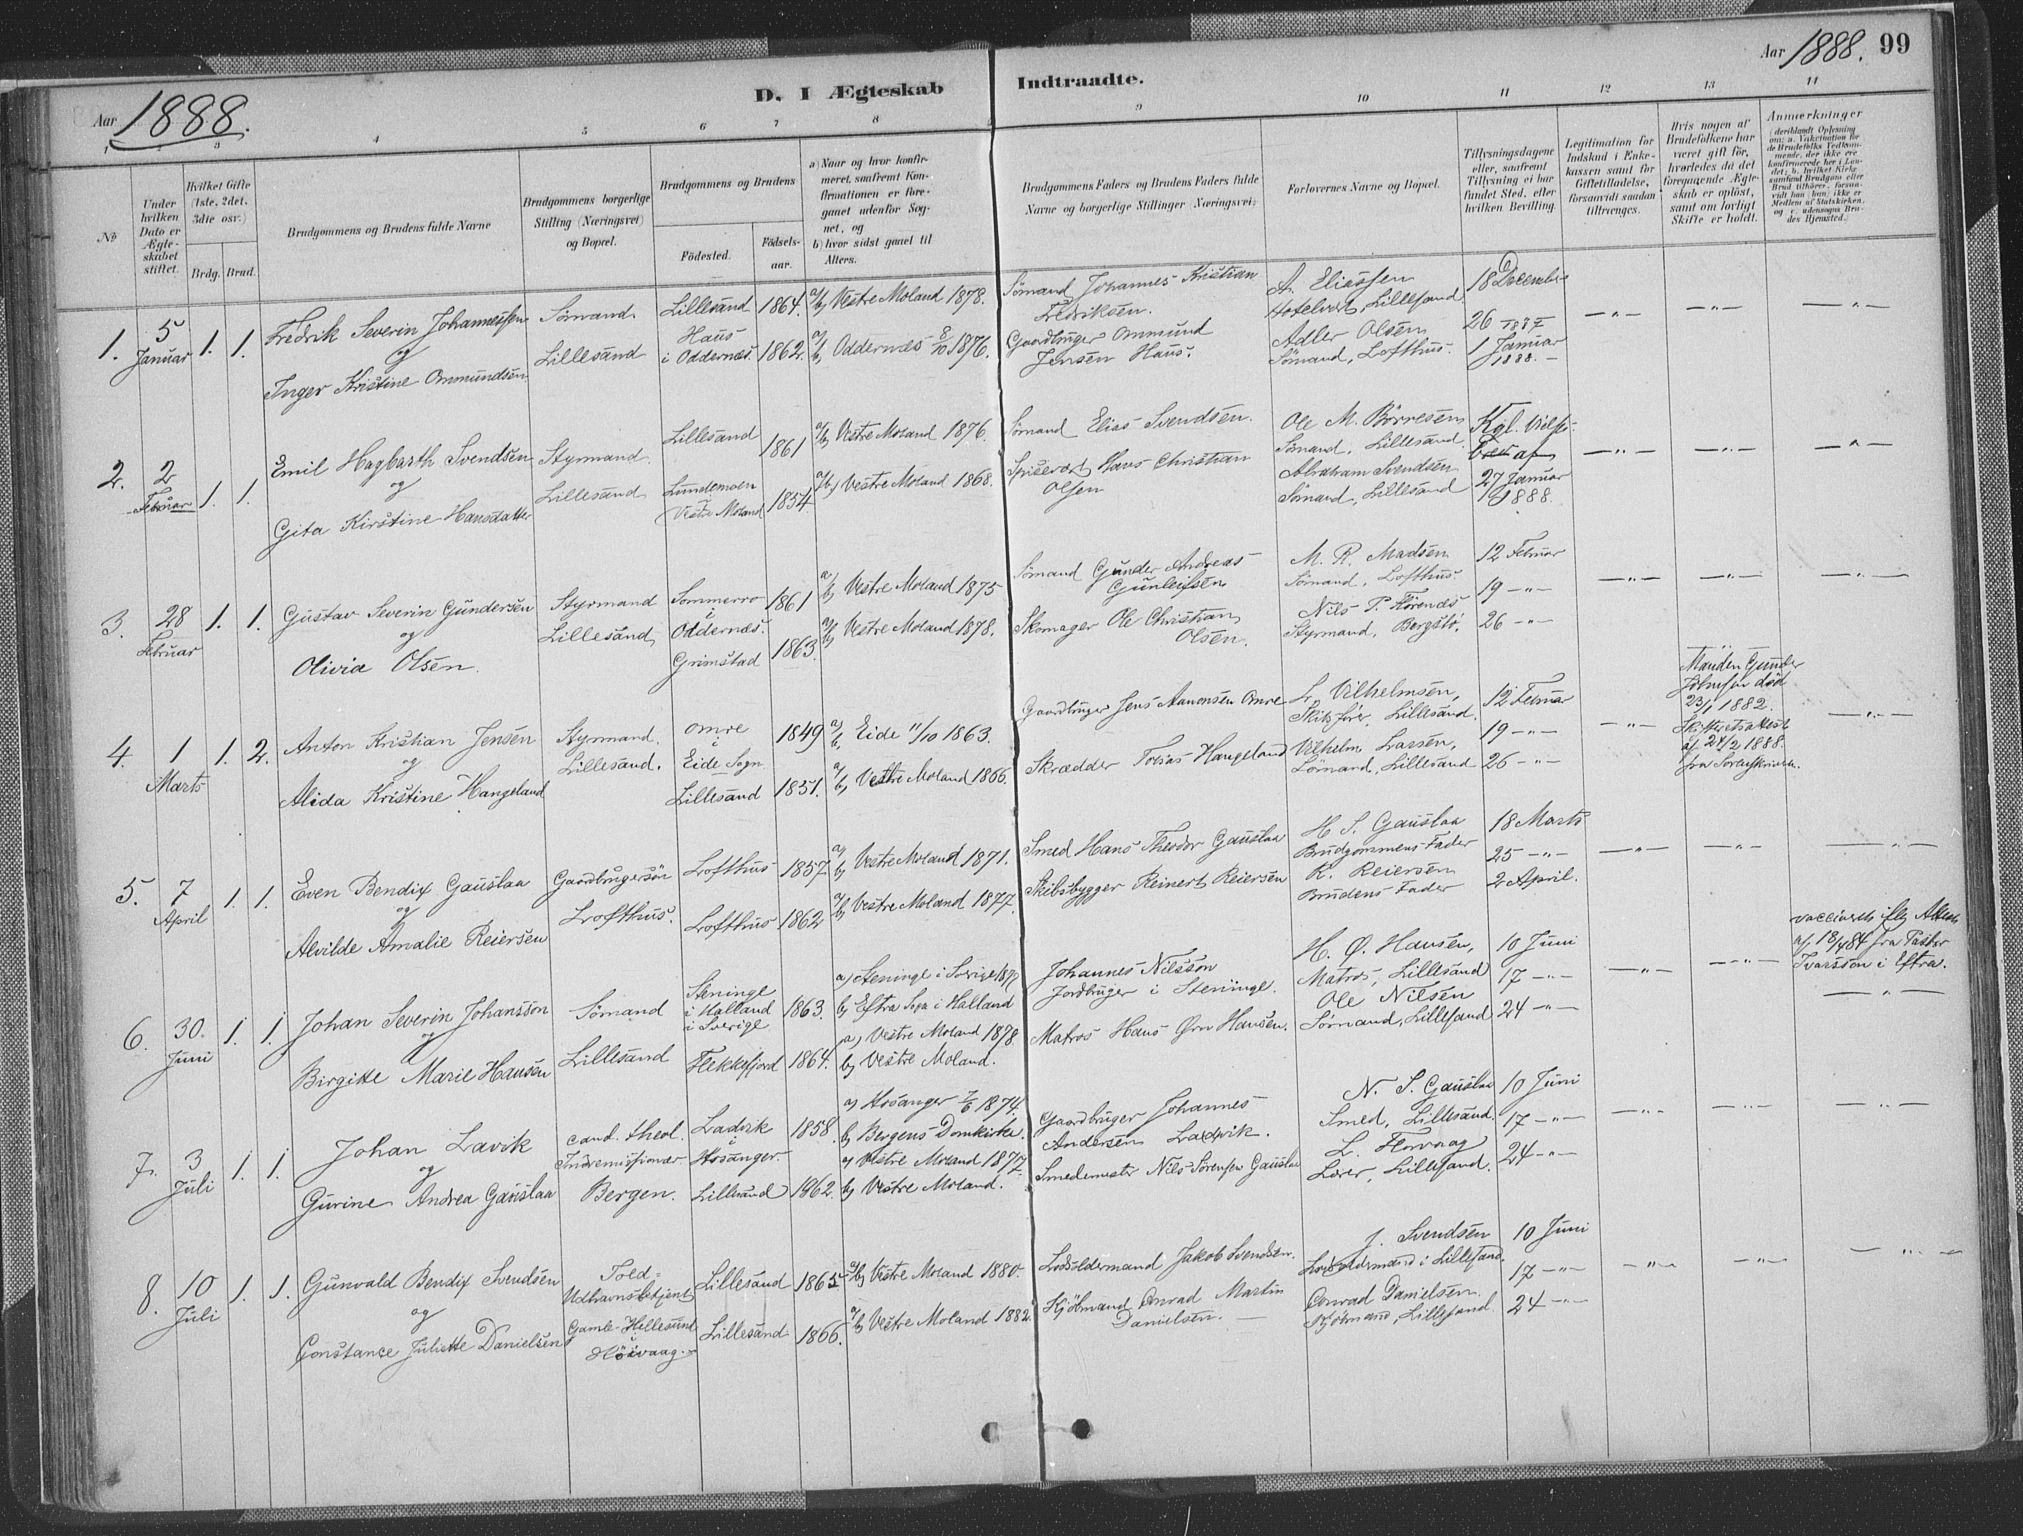 Aar 1888.
D. I Ægteskab Indtraadte.
Aar 1888. 99
1 2 3 4 5 6 7 8 9 10 11 12 13 14
No
Under hvilken Dato er Ægteskabet stiftet.
Hvilket Gifte (1ste, 2det, 3die osv.)
Brdg. Brud.
Brudgommens og Brudens fulde Navne
Brudgommens borgerlige Stilling (Næringsvei) og Bopæl.
Brudgommens og Brudens
Födested.
Födselsaar.
a) Naar og hvor konfirmeret, saafremt Konfirmationen er foregaaet udenfor Sognet, og
b) hvor sidst gaaet til Alters.
Brudgommens Faders og Brudens Faders fulde Navne og borgerlige Stillinger (Næringsvei)
Forlovernes Navne og Bopæl.
Tillysningsdagene eller, saafremt Tillysning ei har fundet Sted, efter hvilken Bevilling.
Legitimation for Indskud i Enkekassen samt for Giftetilladelse, forsaavidt saadan tiltrænges.
Hvis nogen af Brudefolkene har været gift för, hvorledes da det foregaaende Ægteskab er oplöst, samt om lovligt Skifte er holdt.
Anmerkninger
1. 5 Januar 1. 1.
Fredrik Severin Johannessen
og
Inger Kristine Ommundsen
Sømand
Lillesand
Lillesand 1864.
Haus i Oddernæs 1862.
a/b) Vestre Moland 1878.
a/b) Oddernæs 8/10 1876.
Sømand Johannes Kristian Fredriksen.
Gaardbruger Ommund Jensen Haus.
A. Eliassen
Hotelvert, Lillesand
Adler Olsen
Sømand, Lofthus.
18 December
26 1887
1 Januar 1888. –
—〃— —〃— —〃—
2. 2 Februar 1. 1.
Emil Hagbarth Svendsen
og
Gita Kirstine Hansdatter
Styrmand
Lillesand
Lillesand 1861
Lundemoen Vestre Moland 1854
a/b) Vestre Moland 1876.
a/b) Vestre Moland 1868.
Sømand Elias Svendsen.
Spisevert Hans Christian Olsen
Ole M. Börresen
Sømand, Lillesand.
Abraham Svendsen
Sømand, Lillesand
Kgl. Vielsesbrev af
27 Januar 1888.
—〃— —〃— —〃—
3. 28 Februar 1. 1.
Gustav Severin Gundersen
og
Olivia Olsen.
Styrmand
Lillesand
Sommerro i Oddernæs. 1861
Grimstad 1863.
a/b) Vestre Moland 1875
a/b) Vestre Moland 1878.
Sømand Gunder Andreas Gunleifsen
Skomager Ole Christian Olsen.
M. R. Madsen
Sømand, Lofthus.
Nils P. Hörenes
Styrmand, Bergstø.
12 Februar
19 –〃–
26 –〃–
—〃— —〃— —〃—
4. 1 Marts 1. 2.
Anton Kristian Jensen
og
Alida Kristine Hangeland
Styrmand.
Lillesand.
Omre i Eide Sogn 1849
Lillesand 1851.
a/b) Eide 11/10 1863.
a/b) Vestre Moland 1866.
Gaardbruger Jens Aanonsen Omre
Skrædder Tobias Hangeland
L. Vilhelmsen,
Skibsfører, Lillesand.
Vilhelm Larsen,
Sømand, Lillesand
12 Februar
19 –〃–
26 –〃–
—〃—
Manden Gunder
død
23/1 1882.
Skifteretsattest
af 24/2 1888.
fra Sorenskriveren.
—〃—
5. 7 April 1. 1.
Even Bendix Gauslaa
og
Alvilde Amalie Reiersen
Gaardbrugersøn
Lofthus.
Lofthus 1857
Lofthus 1862
a/b) Vestre Moland 1871.
a/b) Vestre Moland 1877.
Smed Hans Theodor Gauslaa
Skibsbygger Reinert Reiersen
H. T. Gauslaa
Brudgommens Fader
R. Reiersen
Brudens Fader
18 Marts
25 –〃–
2 April.
—〃— —〃— —〃—
6. 30. Juni 1. 1.
Johan Severin Johansson
og
Birgitte Marie Hansen
Sømand
Lillesand
Steninge i Halland i Sverige 1863.
Flekkefjord 1864.
a) Steninge i Sverige
b) Eftra Sogn i Halland
a) Vestre Moland 1878
b) Vestre Moland.
Johannes Nilsson
Jordbruger i Steninge.
Matros Hans Ørn Hansen.
H. Ø. Hansen,
Matros, Lillesand
Ole Nilsen
Sømand, Lillesand
10 Juni
17 –〃–
24 –〃–
—〃— —〃—
vaccineret iflg Attest
fra Pastor
Ivarsson i Eftra.
—〃—
7. 3 Juli 1. 1.
Johan Lavik
og
Gurine Andrea Gauslaa
cand. theol.
Indremissionær
Bergen.
Ladvik i Hosanger 1858
Lillesand 1862.
a) Hosanger 7/6 1874.
b) Bergens Domkirke.
a) Vestre Moland 1877
b) Vestre Moland.
Gaardbruger Johannes Andersen Ladvik.
Smedemester Nils Sørensen Gauslaa
N. S. Gauslaa
Smed, Lillesand.
L. Horvaag
Lærer, Lillesand.
10 Juni
17 –〃–
24 –〃–
—〃— —〃— —〃—
8. 10 Juli 1. 1.
Gunvald Bendix Svendsen
og
Constance Juliette Danielsen
Told-
Udhavnsbetjent
Gamle-Hellesund
i
Høivaag.
Lillesand 1865
Lillesand 1866.
a/b) Vestre Moland 1880.
a/b) Vestre Moland 1882.
Lodsoldermand Jakob Svendsen.
Kjöbmand Conrad Martin Danielsen. —
J. Svendsen
Lodsoldermand i Lillesand.
Conrad Danielsen.
Kjöbmand, Lillesand
10 Juni
17 –〃–
24 –〃–
—〃— —〃— —〃—